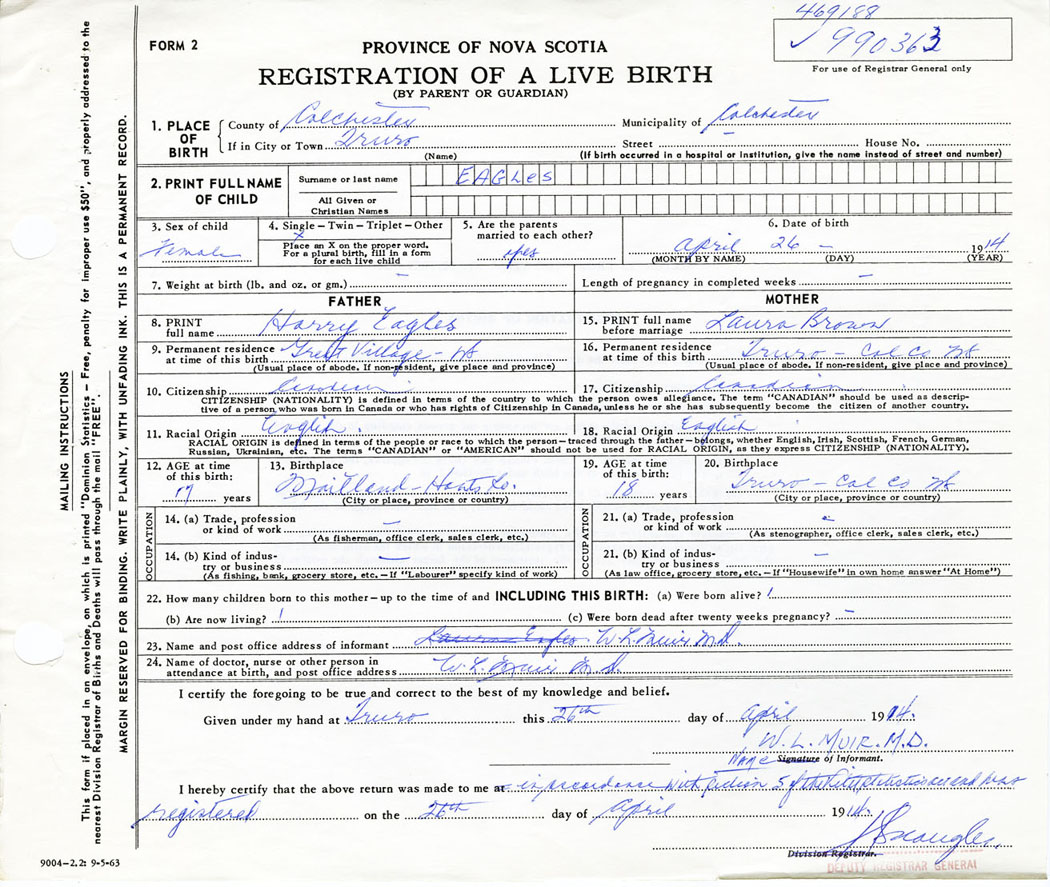 469188
FORM 2
PROVINCE OF NOVA SCOTIA
✓ 990363
REGISTRATION OF A LIVE BIRTH
For use of Registrar General only
(BY PARENT OR GUARDIAN)
1. PLACE OF BIRTH
County of Colchester Municipality of Colchester
If in City or Town Truro Street House No.
(Name) (If birth occurred in a hospital or institution, give the name instead of street and number)
2. PRINT FULL NAME OF CHILD
Surname or last name EAGLES
All Given or Christian Names
3. Sex of child
Female
4. Single – Twin – Triplet – Other
X
Place an X on the proper word.
For a plural birth, fill in a form
for each live child
5. Are the parents
married to each other?
yes
6. Date of birth
April 26 – 1914
(MONTH BY NAME) (DAY) (YEAR)
7. Weight at birth (lb. and oz. or gm.) – Length of pregnancy in completed weeks –
FATHER
8. PRINT
full name Harry Eagles
9. Permanent residence
at time of this birth Great Village – NS
(Usual place of abode. If non-resident, give place and province)
10. Citizenship Canadian
MOTHER
15. PRINT full name
before marriage Laura Brown
16. Permanent residence
at time of this birth Truro – Col Co NS
(Usual place of abode. If non-resident, give place and province)
17. Citizenship Canadian
CITIZENSHIP (NATIONALITY) is defined in terms of the country to which the person owes allegiance. The term "CANADIAN" should be used as descrip-
tive of a person who was born in Canada or who has rights of Citizenship in Canada, unless he or she has subsequently become the citizen of another country.
11. Racial Origin English. 18. Racial Origin English
RACIAL ORIGIN is defined in terms of the people or race to which the person – traced through the father – belongs, whether English, Irish, Scottish, French, German,
Russian, Ukrainian, etc. The terms "CANADIAN" or "AMERICAN" should not be used for RACIAL ORIGIN, as they express CITIZENSHIP (NATIONALITY).
12. AGE at time
of this birth:
19 years
13. Birthplace
Maitland – Hants Co.
(City or place, province or country)
19. AGE at time
of this birth:
18 years
20. Birthplace
Truro – Col Co NS
(City or place, province or country)
OCCUPATION
14. (a) Trade, profession
or kind of work –
(As fisherman, office clerk, sales clerk, etc.)
14. (b) Kind of indus-
try or business –
(As fishing, bank, grocery store, etc. – If "Labourer" specify kind of work)
OCCUPATION
21. (a) Trade, profession
or kind of work –
(As stenographer, office clerk, sales clerk, etc.)
21. (b) Kind of indus-
try or business –
(As law office, grocery store, etc. – If "Housewife" in own home answer "At Home")
22. How many children born to this mother – up to the time of and INCLUDING THIS BIRTH: (a) Were born alive? 1
(b) Are now living? 1 (c) Were born dead after twenty weeks pregnancy? –
23. Name and post office address of informant Laura Eagles W. L. Muir M.D.
24. Name of doctor, nurse or other person in
attendance at birth, and post office address W. L. Muir M.D.
I certify the foregoing to be true and correct to the best of my knowledge and belief.
Given under my hand at Truro this 26th day of April 1914.
W. L. MUIR. M.D.
Name Signature of Informant.
I hereby certify that the above return was made to me at in accordance with Section 5 of the and was
registered on the 26th day of April 1914.
Division Registrar.
DEPUTY REGISTRAR GENERAL
9004–2.2: 9-5-63
MAILING INSTRUCTIONS
This form if placed in an envelope, on which is printed "Dominion Statistics – Free, penalty for improper use $50", and properly addressed to the
nearest Division Registrar of Births and Deaths will pass through the mail "FREE".
MARGIN RESERVED FOR BINDING. WRITE PLAINLY, WITH UNFADING INK. THIS IS A PERMANENT RECORD.